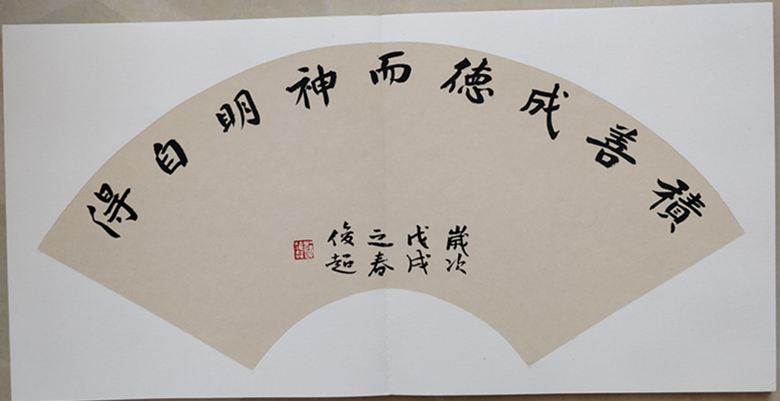 積善成德而神明自得
歲次
戊戌
之春
俊超